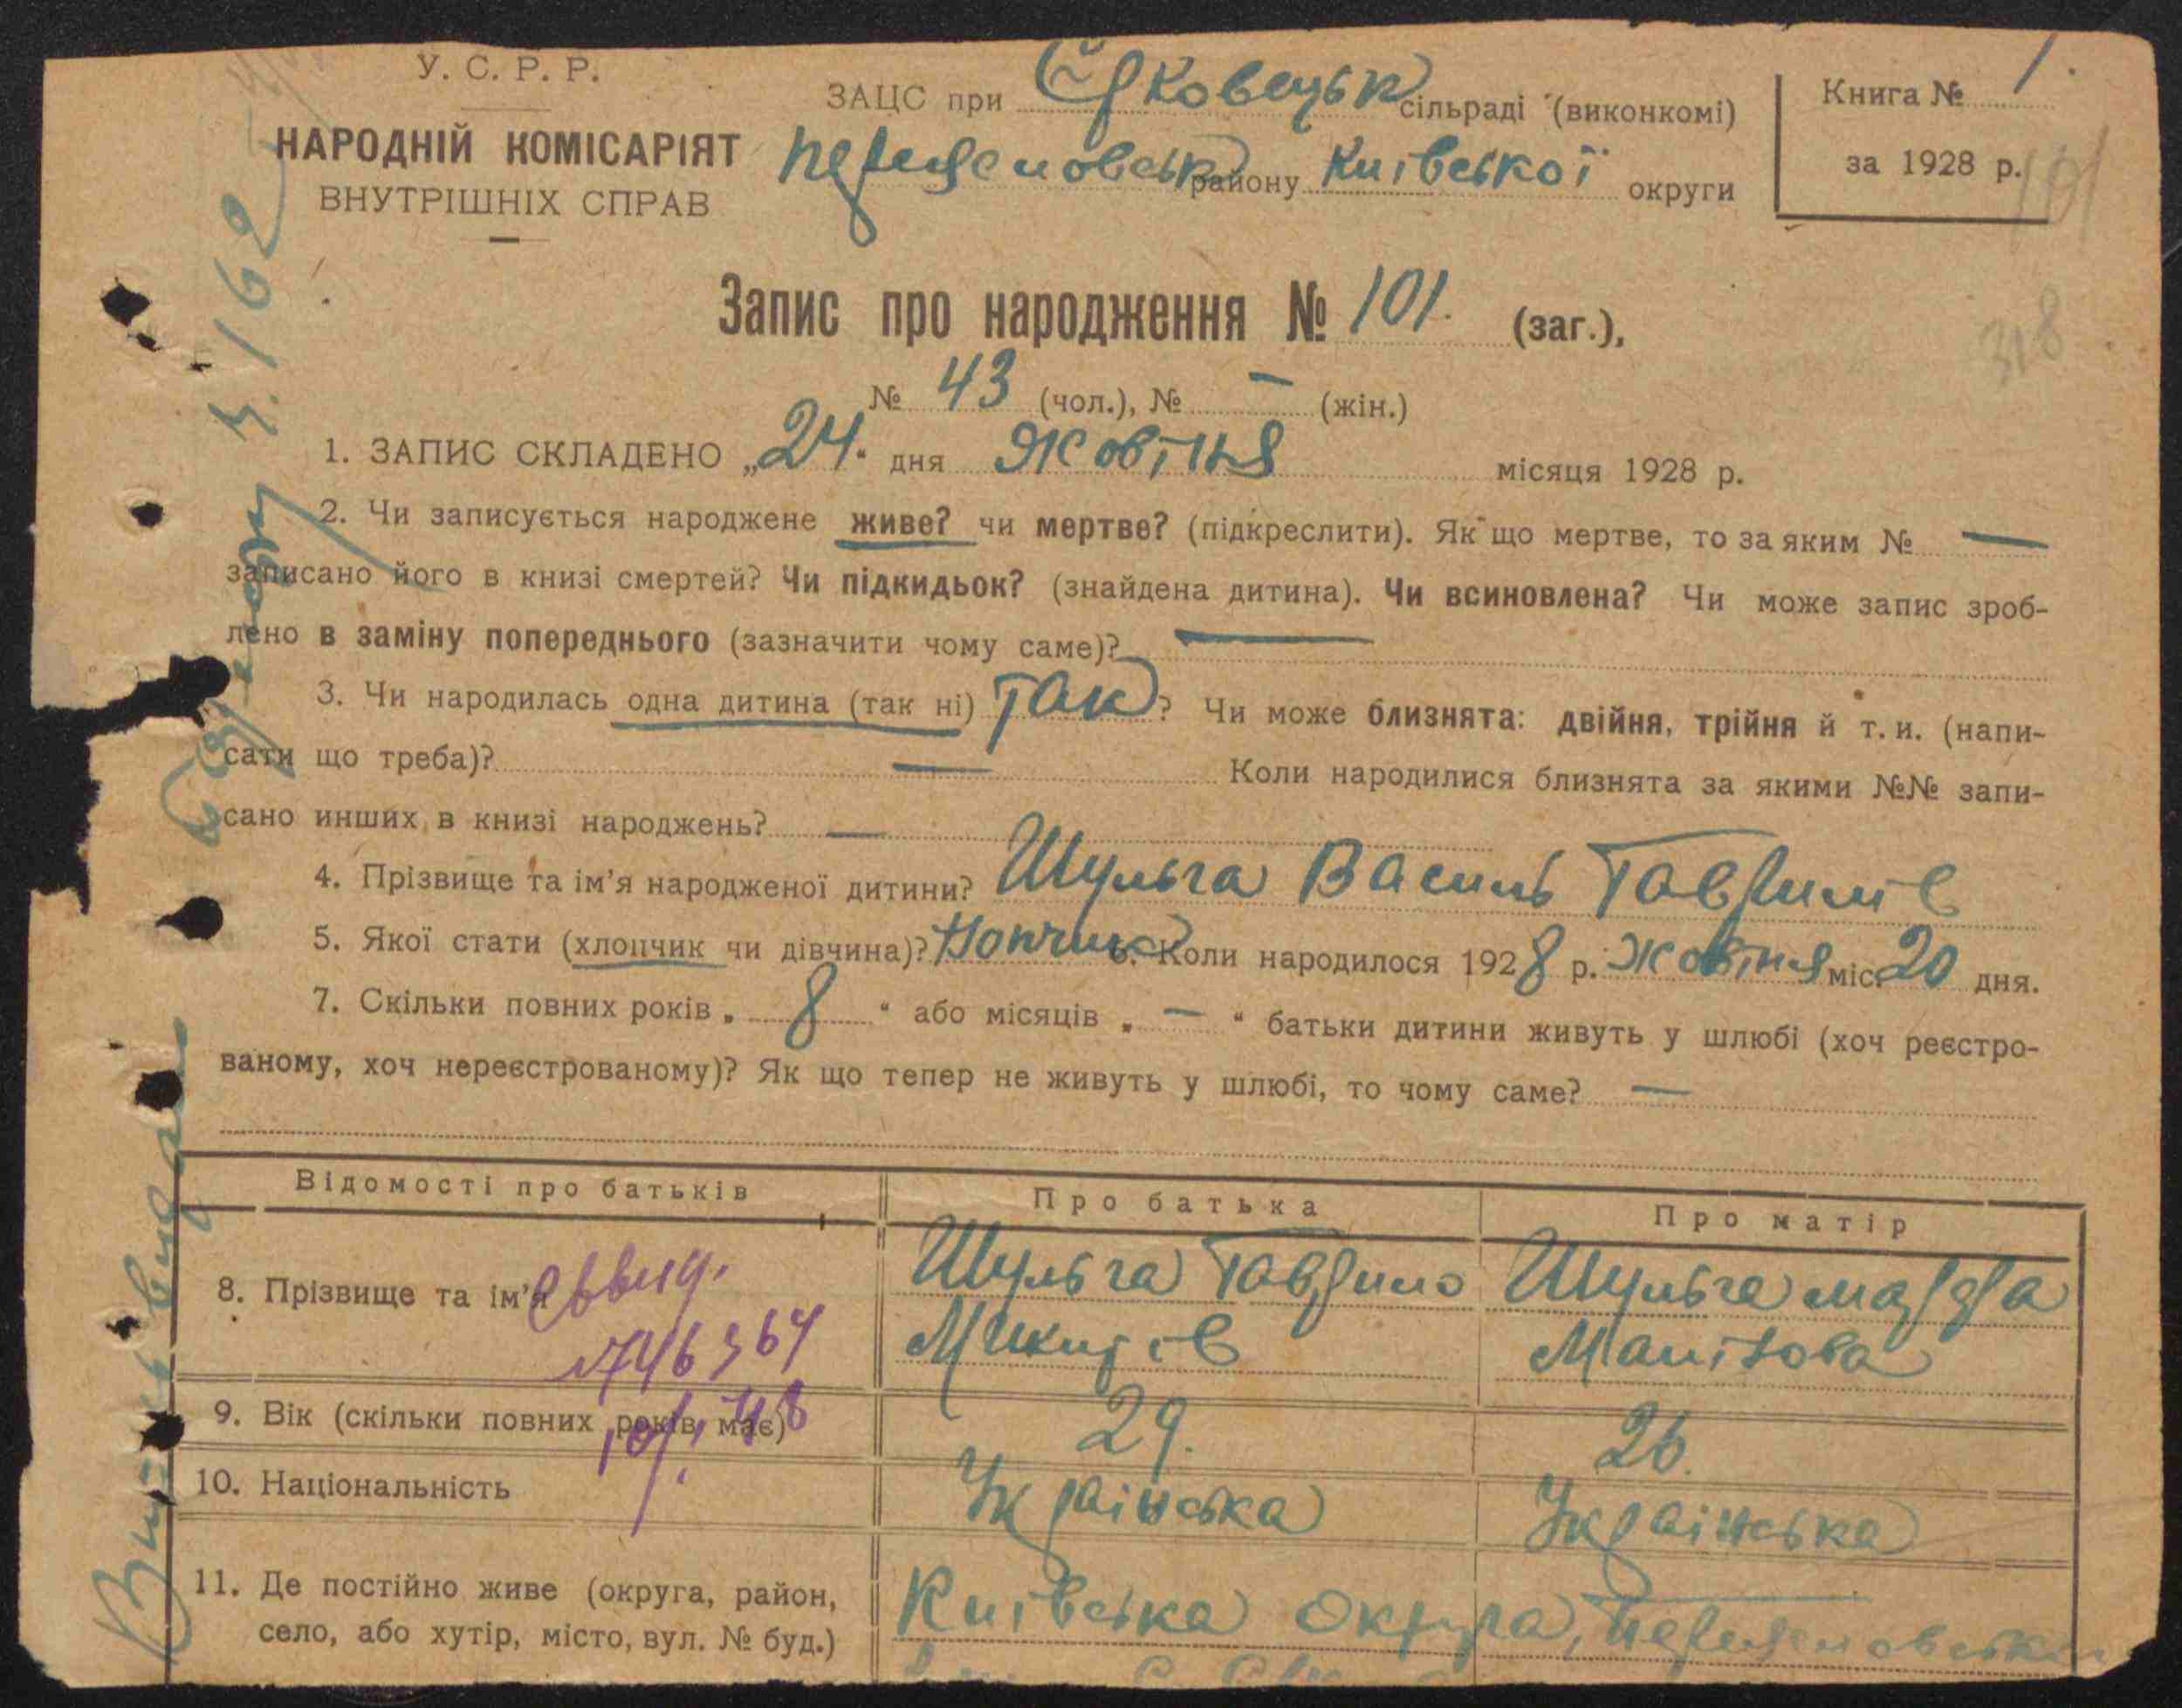 У. С. Р. Р.
НАРОДНІЙ КОМІСАРІЯТ
ВНУТРІШНІХ СПРАВ
ЗАЦС при сільраді (виконкомі)
району Київської округи
Книга № 1.
за 1928 р.
101
318
Запис про народження № 101. (заг.),
№ 43 (чол.), № — (жін.)
1. ЗАПИС СКЛАДЕНО „24“ дня Жовтня місяця 1928 р.
2. Чи записується народжене живе? чи мертве? (підкреслити). Як що мертве, то за яким № —
записано його в книзі смертей? Чи підкидьок? (знайдена дитина). Чи всиновлена? Чи може запис зроб-
лено в заміну попереднього (зазначити чому саме)? —
3. Чи народилась одна дитина (так ні) Так? Чи може близнята: двійня, трійня й т. и. (напи-
сати що треба)? — Коли народилися близнята за якими №№ запи-
сано инших в книзі народжень? —
4. Прізвище та ім'я народженої дитини? Шульга Василь Гаврилів
5. Якої стати (хлопчик чи дівчина)? Хлопчик 6. Коли народилося 1928 р. Жовтня міс. 20 дня.
7. Скільки повних років „ 8 “ або місяців „ — “ батьки дитини живуть у шлюбі (хоч реєстро-
ваному, хоч нереєстрованому)? Як що тепер не живуть у шлюбі, то чому саме? —
Відомості про батьків Про батька Про матір
8. Прізвище та ім'я Шульга Гаврило Шульга
9. Вік (скільки повних років має) 29. 26.
10. Національність Українська Українська
11. Де постійно живе (округа, район,
село, або хутір, місто, вул. № буд.) Київська округа,